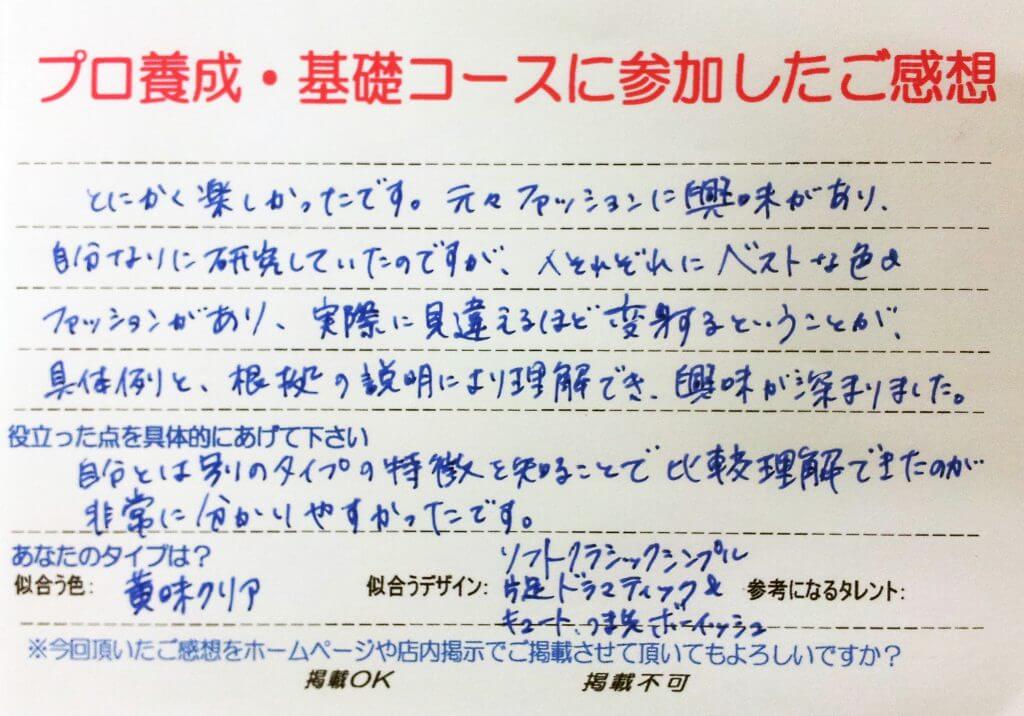 プロ養成・基礎コースに参加したご感想
とにかく楽しかったです。元々ファッションに興味があり、
自分なりに研究していたのですが、人それぞれにベストな色&
ファッションがあり、実際に見違えるほど変身するということが、
具体例と、根拠の説明により理解でき、興味が深まりました。
役立った点を具体的にあげて下さい
自分とは別のタイプの特徴を知ることで比較理解できたのが
非常に分かりやすかったです。
あなたのタイプは?
似合う色: 黄味クリア
似合うデザイン: ソフトクラシックシンプル
片足ドラマティック&
キュート、つま先ボーイッシュ
参考になるタレント:
※今回頂いたご感想をホームページや店内掲示でご掲載させて頂いてもよろしいですか?
掲載OK 掲載不可